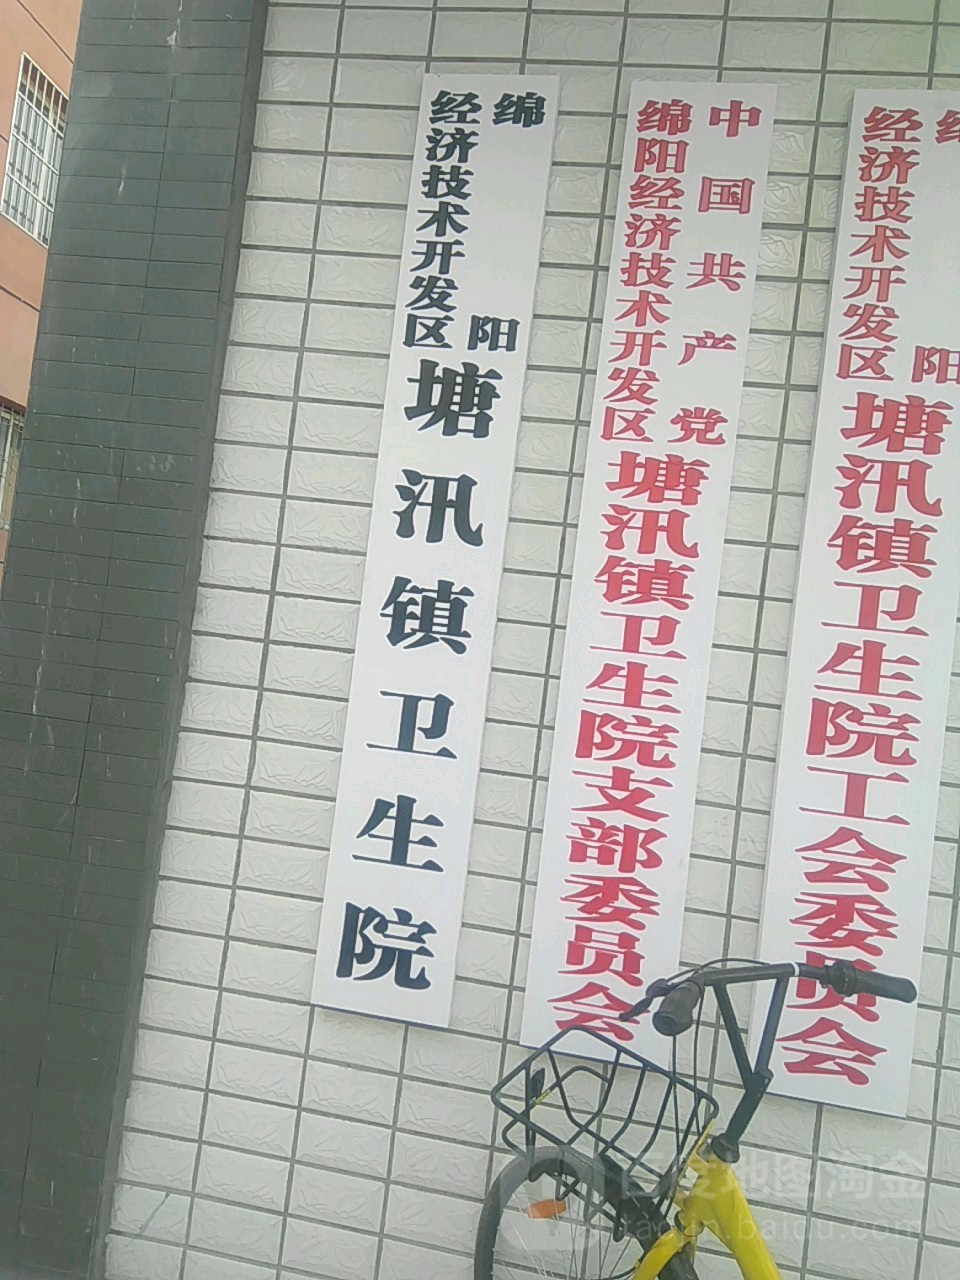 绵阳
经济技术开发区
塘汛镇卫生院
中国共产党
绵阳经济技术开发区
塘汛镇卫生院支部委员会
绵阳
经济技术开发区
塘汛镇卫生院工会委员会
百度地图淘金
taojin.baidu.com